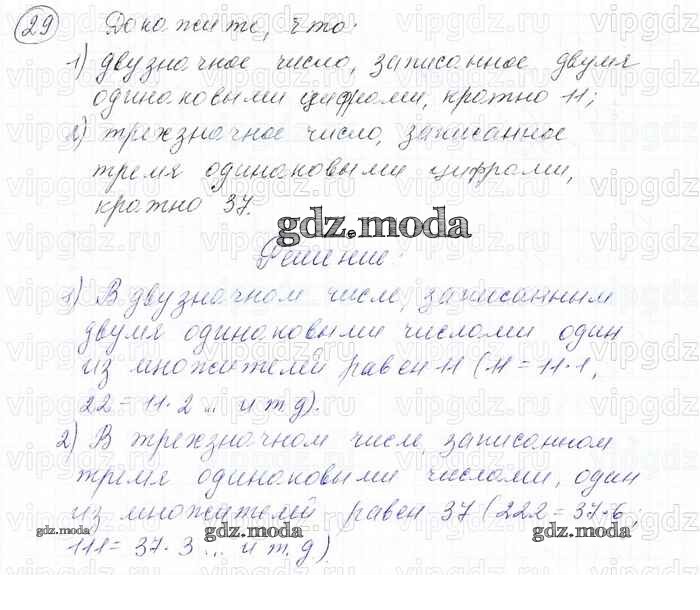 29 Докажите, что:
1) двузначное число, записанное двумя
одинаковыми цифрами, кратно 11;
2) трехзначное число, записанное
тремя одинаковыми цифрами,
кратно 37.
gdz.moda
Решение:
1) В двузначном числе, записанным
двумя одинаковыми числами один
из множителей равен 11 (11 = 11·1,
22 = 11·2 ... и т.д).
2) В трехзначном числе, записанном
тремя одинаковыми числами, один
из множителей равен 37 (222 = 37·6;
111 = 37·3 ... и т.д)
gdz.moda
gdz.moda
gdz.moda